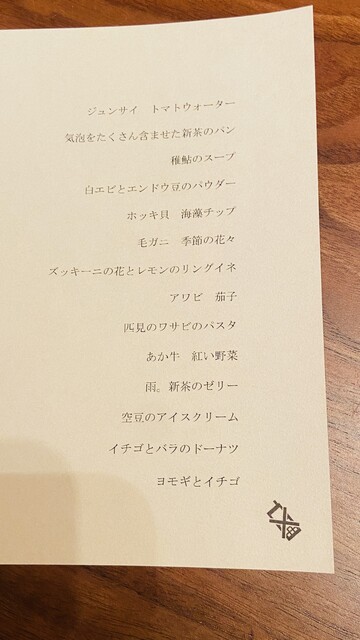 ジュンサイ　トマトウォーター
気泡をたくさん含ませた新茶のパン
稚鮎のスープ
白エビとエンドウ豆のパウダー
ホッキ貝　海藻チップ
毛ガニ　季節の花々
ズッキーニの花とレモンのリングイネ
アワビ　茄子
匹見のワサビのパスタ
あか牛　紅い野菜
雨。新茶のゼリー
空豆のアイスクリーム
イチゴとバラのドーナツ
ヨモギとイチゴ